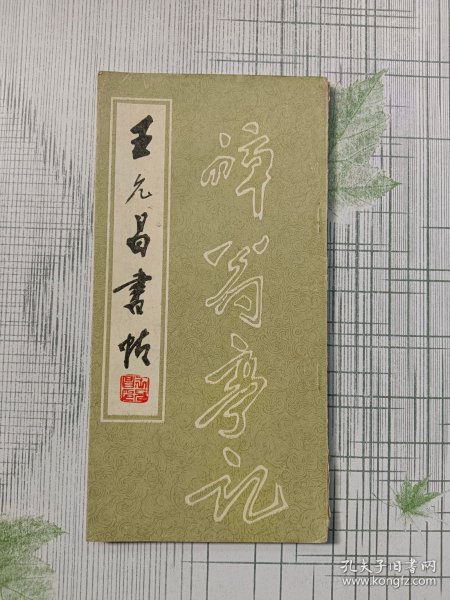 王允昌書帖
醉翁亭记
孔夫子旧书网
www.kongfz.com